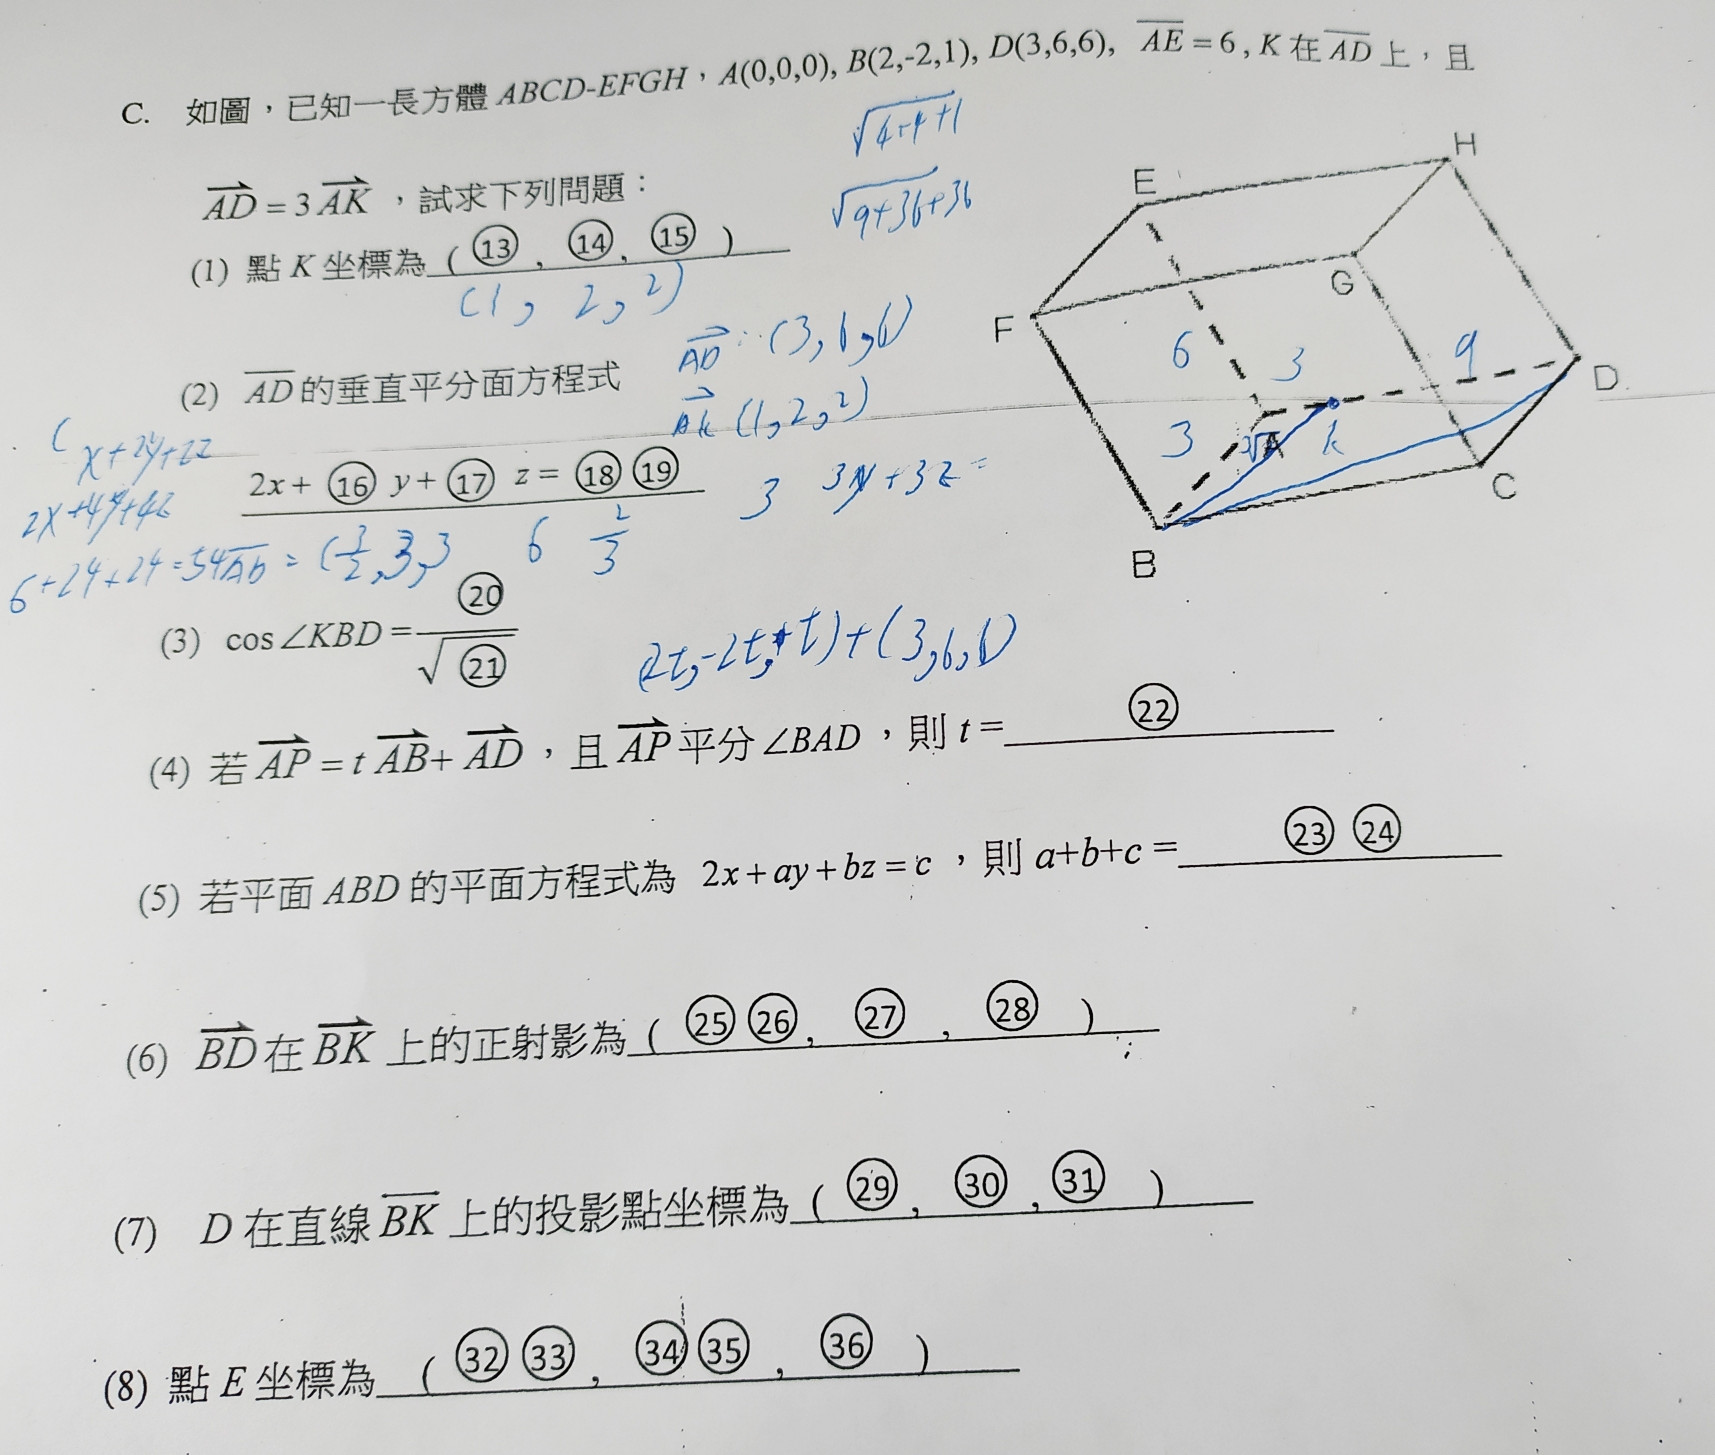 C. 如圖，已知一長方體 ABCD-EFGH，A(0,0,0), B(2,-2,1), D(3,6,6), \overline{AE} = 6 , K 在 \overline{AD} 上，且
√4+4+1
\overrightarrow{AD} = 3 \overrightarrow{AK} ，試求下列問題：
√9+36+36
(1) 點 K 坐標為 ( ⑬ , ⑭ , ⑮ )
(1, 2, 2)
H
E
G
F
D
A
K
C
B
6
3
9
3
\overrightarrow{AD} : (3,6,6)
\overrightarrow{AK} (1,2,2)
(2) \overline{AD} 的垂直平分面方程式
x+2y+2z
2x+ ⑯ y+ ⑰ z = ⑱ ⑲
2x+4y+4z
3 3y+3z=
6+24+24=54
(3/2, 3, 3)
6
2/3
(3) cos∠KBD = ⑳ / √㉑
(2t,-2t,t)+(3,6,6)
(4) 若 \overrightarrow{AP} = t \overrightarrow{AB} + \overrightarrow{AD} ，且 \overrightarrow{AP} 平分 ∠BAD ，則 t = ㉒
(5) 若平面 ABD 的平面方程式為 2x + ay + bz = c ，則 a+b+c = ㉓ ㉔
(6) \overrightarrow{BD} 在 \overrightarrow{BK} 上的正射影為 ( ㉕ ㉖ , ㉗ , ㉘ )
(7) D 在直線 \overline{BK} 上的投影點坐標為 ( ㉙ , ㉚ , ㉛ )
(8) 點 E 坐標為 ( ㉜ ㉝ , ㉞ ㉟ , ㊱ )